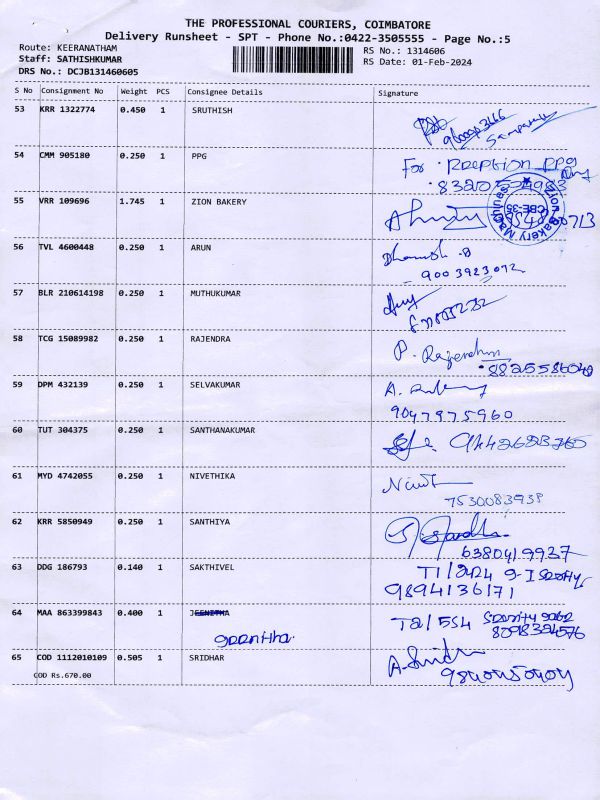 THE PROFESSIONAL COURIERS, COIMBATORE
Delivery Runsheet - SPT - Phone No.:0422-3505555 - Page No.:5
Route: KEERANATHAM
RS No.: 1314606
Staff: SATHISHKUMAR
RS Date: 01-Feb-2024
DRS No.: DCJB131460605
S No Consignment No Weight PCS Consignee Details Signature
53 KRR 1322774 0.450 1 SRUTHISH
54 CMM 905180 0.250 1 PPG
For Reception PPG
55 VRR 109696 1.745 1 ZION BAKERY
Zion Bakery
CBE-35
56 TVL 4600448 0.250 1 ARUN
9003923092
57 BLR 210614198 0.250 1 MUTHUKUMAR
58 TCG 15089982 0.250 1 RAJENDRA
P. Rajendran
8825586040
59 DPM 432139 0.250 1 SELVAKUMAR
9047975960
60 TUT 304375 0.250 1 SANTHANAKUMAR
61 MYD 4742055 0.250 1 NIVETHIKA
7530083938
62 KRR 5850949 0.250 1 SANTHIYA
6380419937
63 DDG 186793 0.140 1 SAKTHIVEL
9894136171
64 MAA 863399843 0.400 1 JEENITHA
65 COD 1112010109 0.505 1 SRIDHAR
COD Rs.670.00